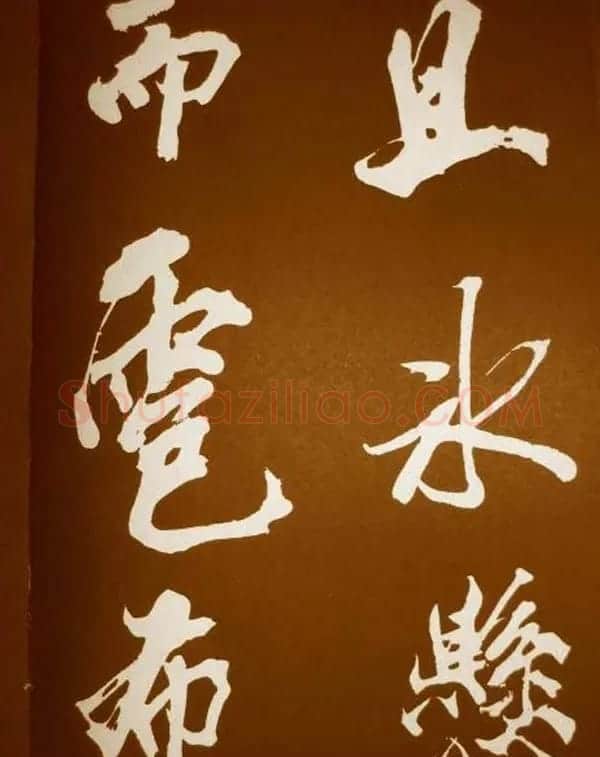 且冰懸
而雹布
Shufaziliao.COM